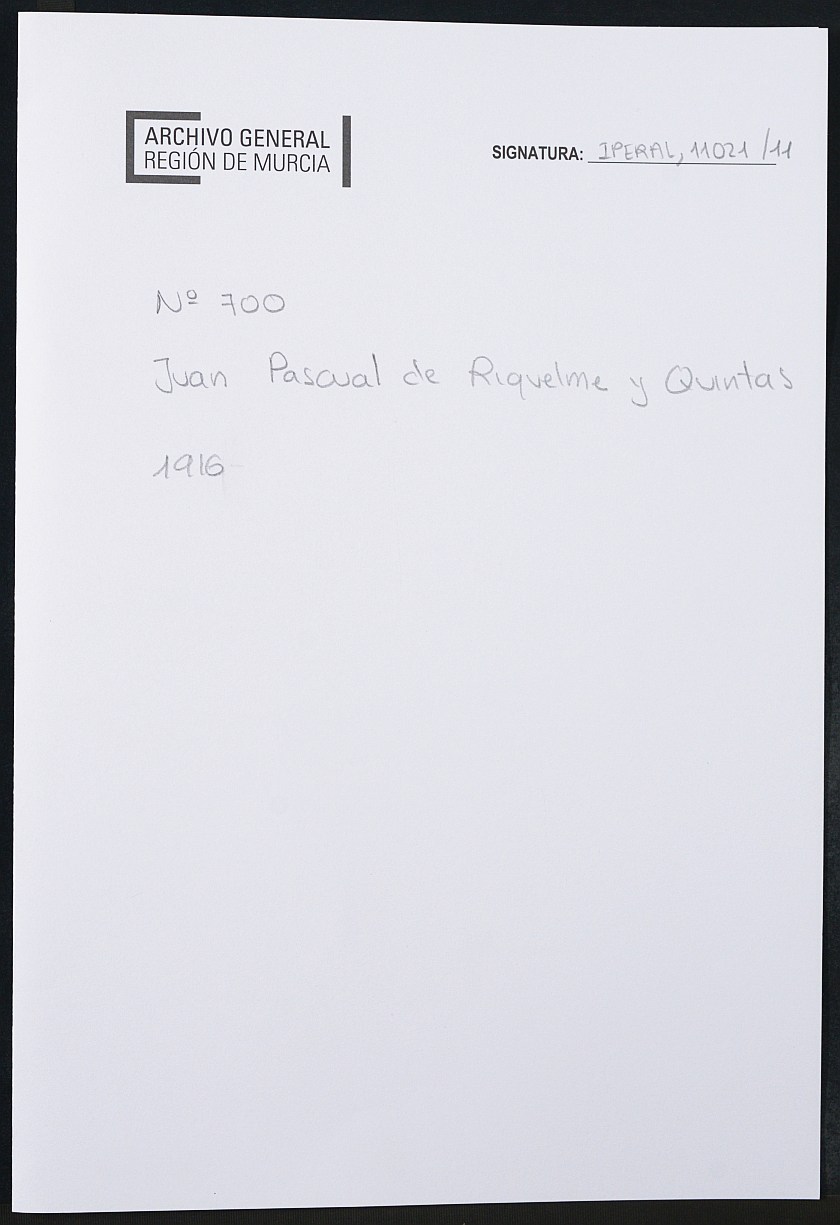 ARCHIVO GENERAL
REGIÓN DE MURCIA
SIGNATURA: IPERAL, 11021 /11
Nº 700
Juan Pascual de Riquelme y Quintas
1916